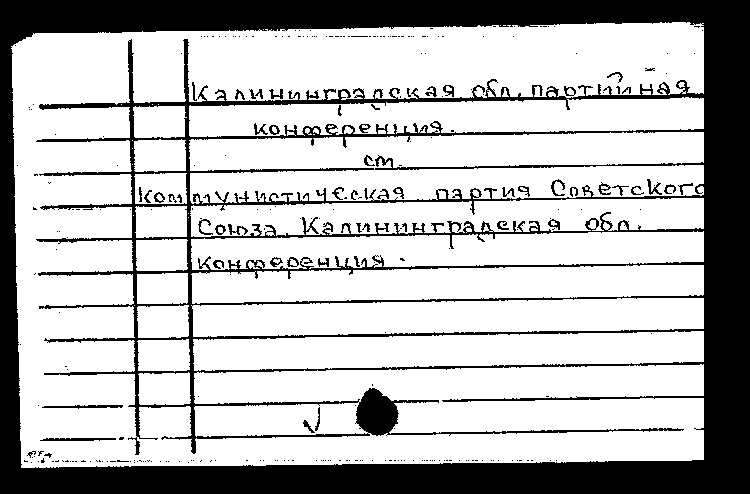 Калининградская обл. партийная
конференция.
см.
Коммунистическая партия Советского
Союза. Калининградская обл.
конференция.